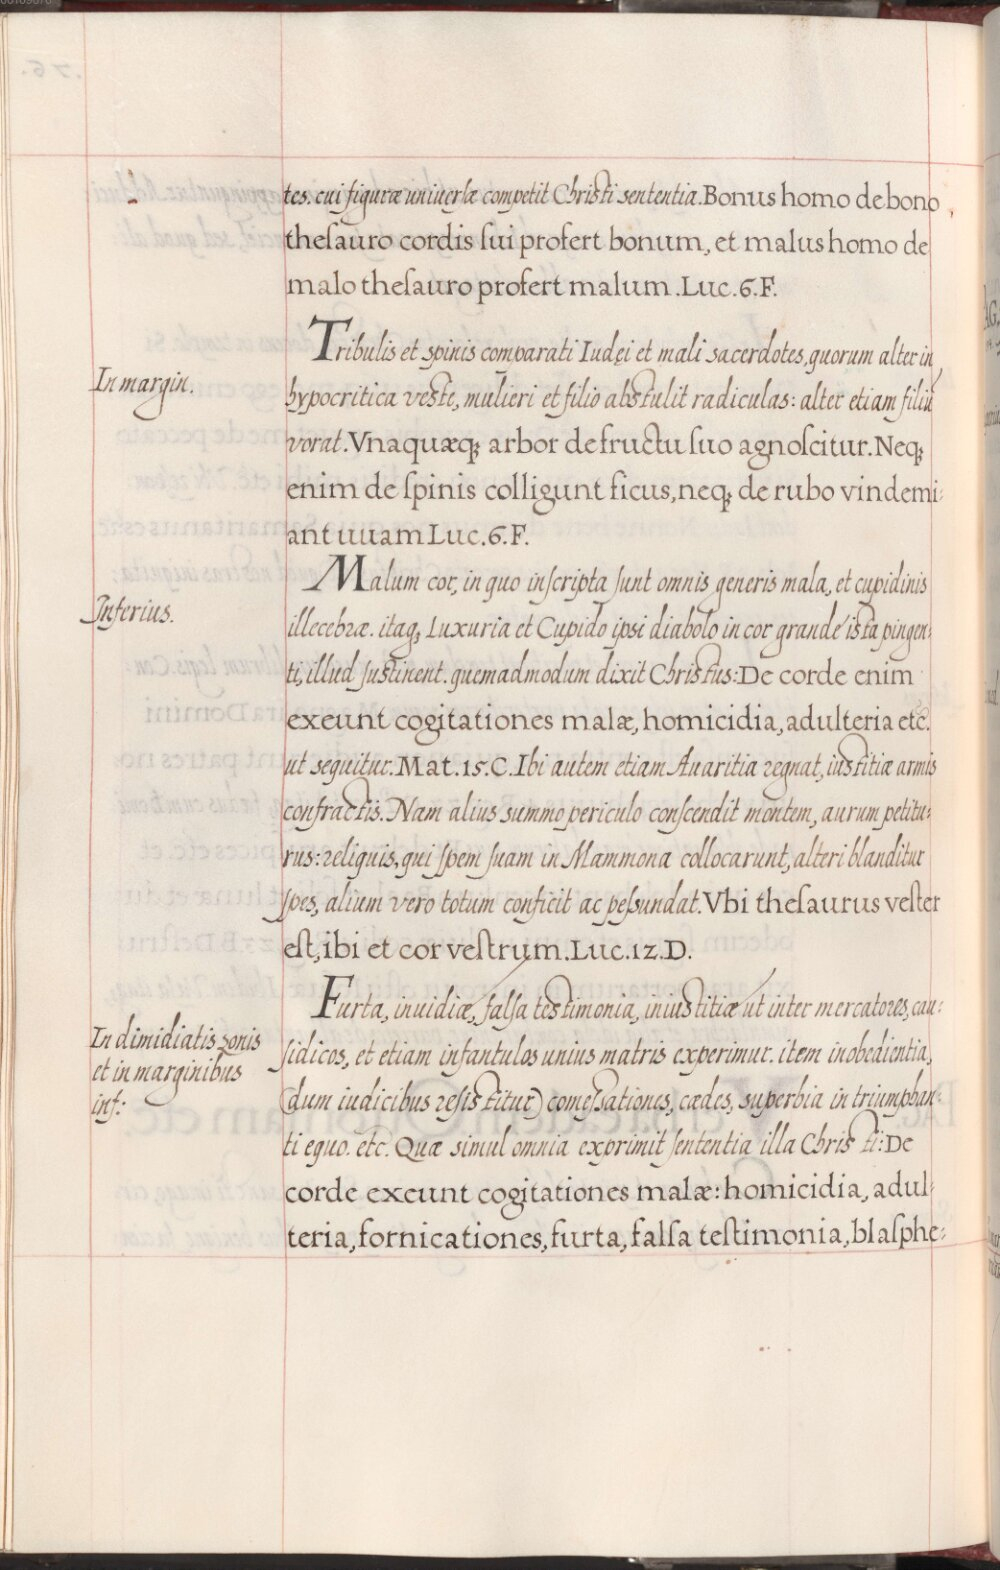 tes. cui figuræ uniuerſæ competit Chriſti sententia. Bonus homo de bono
theſauro cordis ſui profert bonum, et malus homo de
malo theſauro profert malum. Luc. 6. F.
In margin.
Tribulis et spinis comparati Iudęi et mali sacerdotes, quorum alter in
hypocritica veste, mulieri et filio abstulit radiculas: alter etiam filiū
vorat. Vnaquæq; arbor de fructu ſuo agnoſcitur. Neq;
enim de ſpinis colligunt ficus, neq; de rubo vindemi-
ant uuam Luc. 6. F.
Inferius.
Malum cor, in quo inſcripta ſunt omnis generis mala, et cupidinis
illecebræ. itaq; Luxuria et Cupido ipsi diabolo in cor grande ista pingen-
ti, illud ſustinent. quemadmodum dixit Christus: De corde enim
exeunt cogitationes malæ, homicidia, adulteria etc.
ut sequitur. Mat. 15. C. Ibi autem etiam Auaritia regnat, iustitiæ armis
confractis. Nam alius summo periculo conſcendit montem, aurum petitu-
rus: reliquis, qui ſpem ſuam in Mammona collocarunt, alteri blanditur
ſpes, alium vero totum conficit ac peſsundat. Vbi theſaurus veſter
eſt, ibi et cor veſtrum. Luc. 12. D.
In dimidiatis zonis
et in marginibus
inf:
Furta, inuidiæ, falſa testimonia, iniustitiæ ut inter mercatores, cau-
ſidicos, et etiam infantulos unius matris experimur. item inobedientia,
(dum iudicibus reſistitur) comeſsationes, cædes, superbia in triumphan-
ti equo. etc. Quæ simul omnia exprimit ſententia illa Christi: De
corde exeunt cogitationes malæ: homicidia, adul-
teria, fornicationes, furta, falſa teſtimonia, blaſphe-